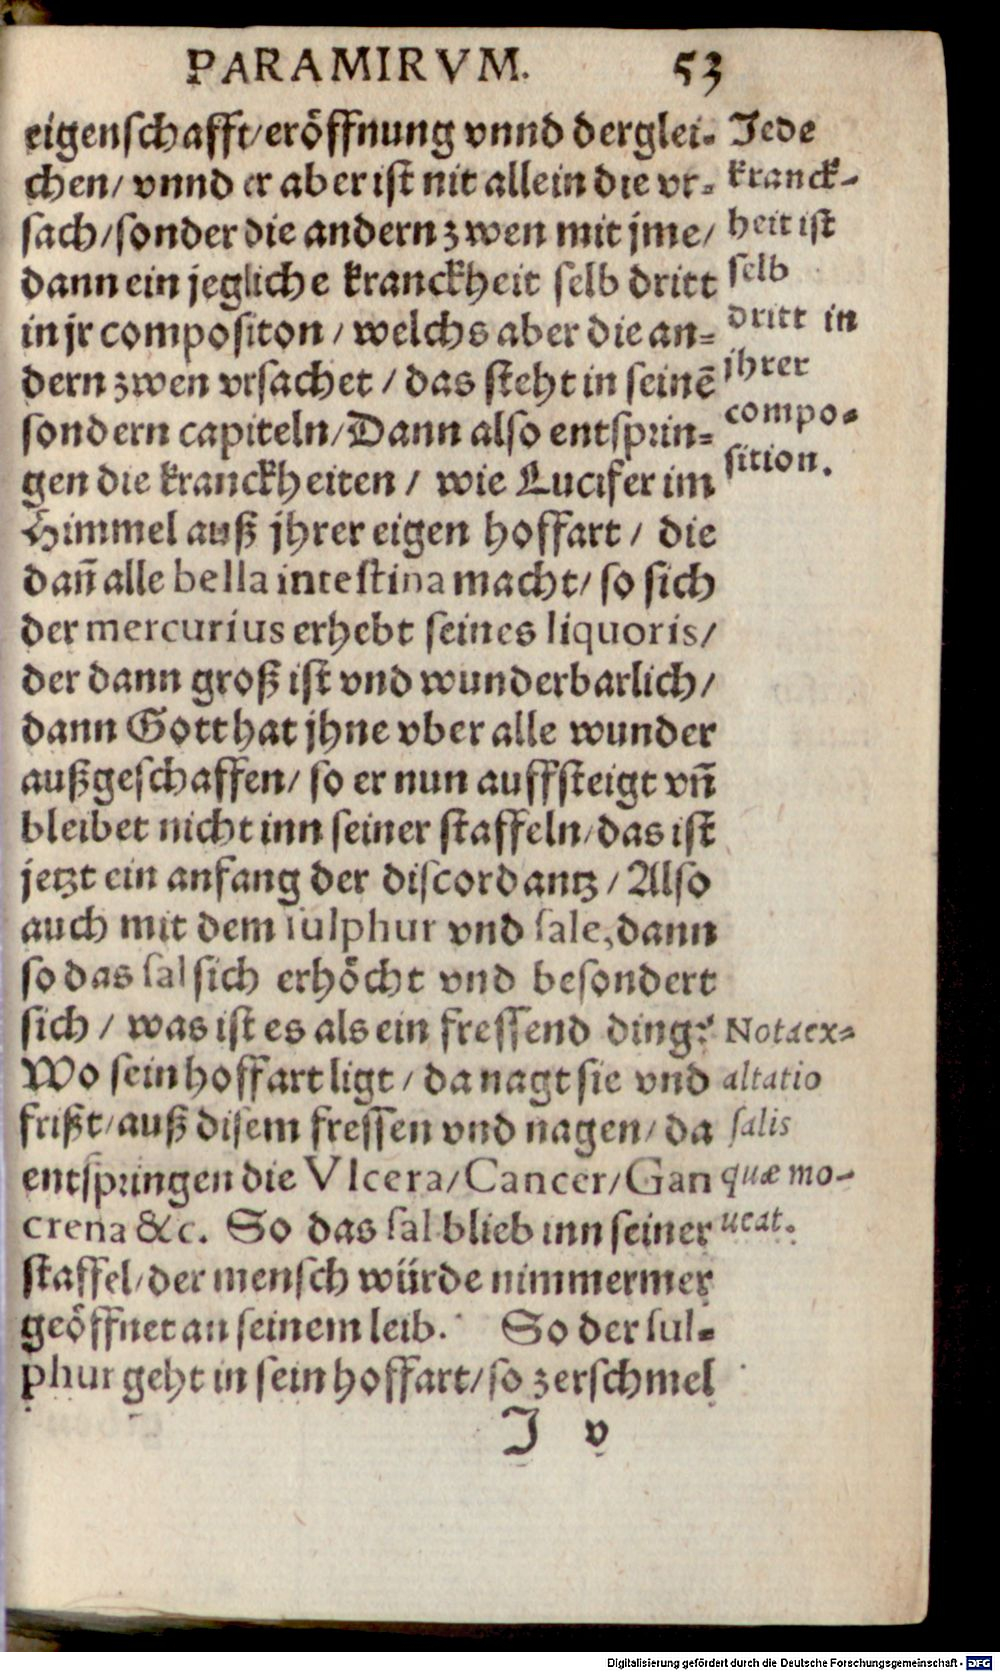 PARAMIRVM. 53
eigenschafft/eröffnung vnnd derglei-
chen/ vnnd er aber ist nit allein die vr-
sach/sonder die andern zwen mit jme/
dann ein jegliche kranckheit selb dritt
in jr compositon/ welchs aber die an-
dern zwen vrsachet/ das steht in seinē
sondern capiteln/Dann also entsprin-
gen die kranckheiten/ wie Lucifer im
Himmel auß jhrer eigen hoffart/ die
dañ alle bella intestina macht/ so sich
der mercurius erhebt seines liquoris/
der dann groß ist vnd wunderbarlich/
dann Gott hat jhne vber alle wunder
außgeschaffen/ so er nun auffsteigt vñ
bleibet nicht inn seiner staffeln/das ist
jetzt ein anfang der discordantz/Also
auch mit dem sulphur vnd sale, dann
so das sal sich erhöcht vnd besondert
sich/ was ist es als ein fressend ding?
Wo sein hoffart ligt/ da nagt sie vnd
frißt/auß disem fressen vnd nagen/da
entspringen die Vlcera/Cancer/Gan
crena &c. So das sal blieb inn seiner
staffel/der mensch würde nimmermer
geöffnet an seinem leib. So der sul-
phur geht in sein hoffart/so zerschmel
J v
Jede
kranck-
heit ist
selb
dritt in
jhrer
compo-
sition.
Nota ex-
altatio
salis
quæ mo-
ueat.
Digitalisierung gefördert durch die Deutsche Forschungsgemeinschaft - DFG